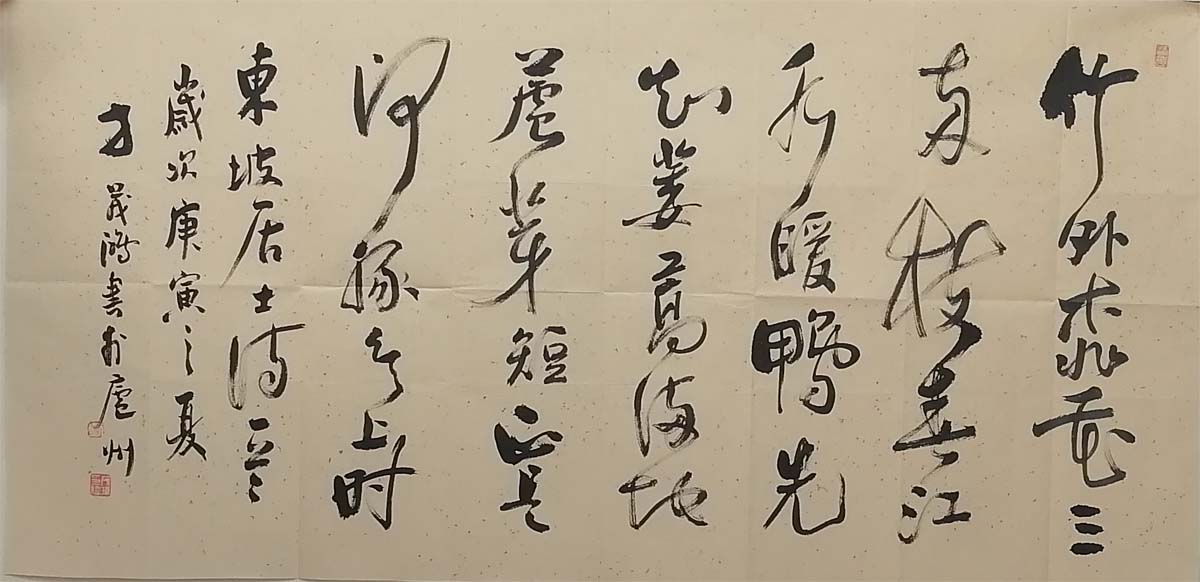 竹外桃花三
两枝春江
水暖鴨先
知蔞蒿满地
蘆芽短正是
河豚欲上时
東坡居士诗一首
歲次庚寅之夏
方茂鸿書於廬州